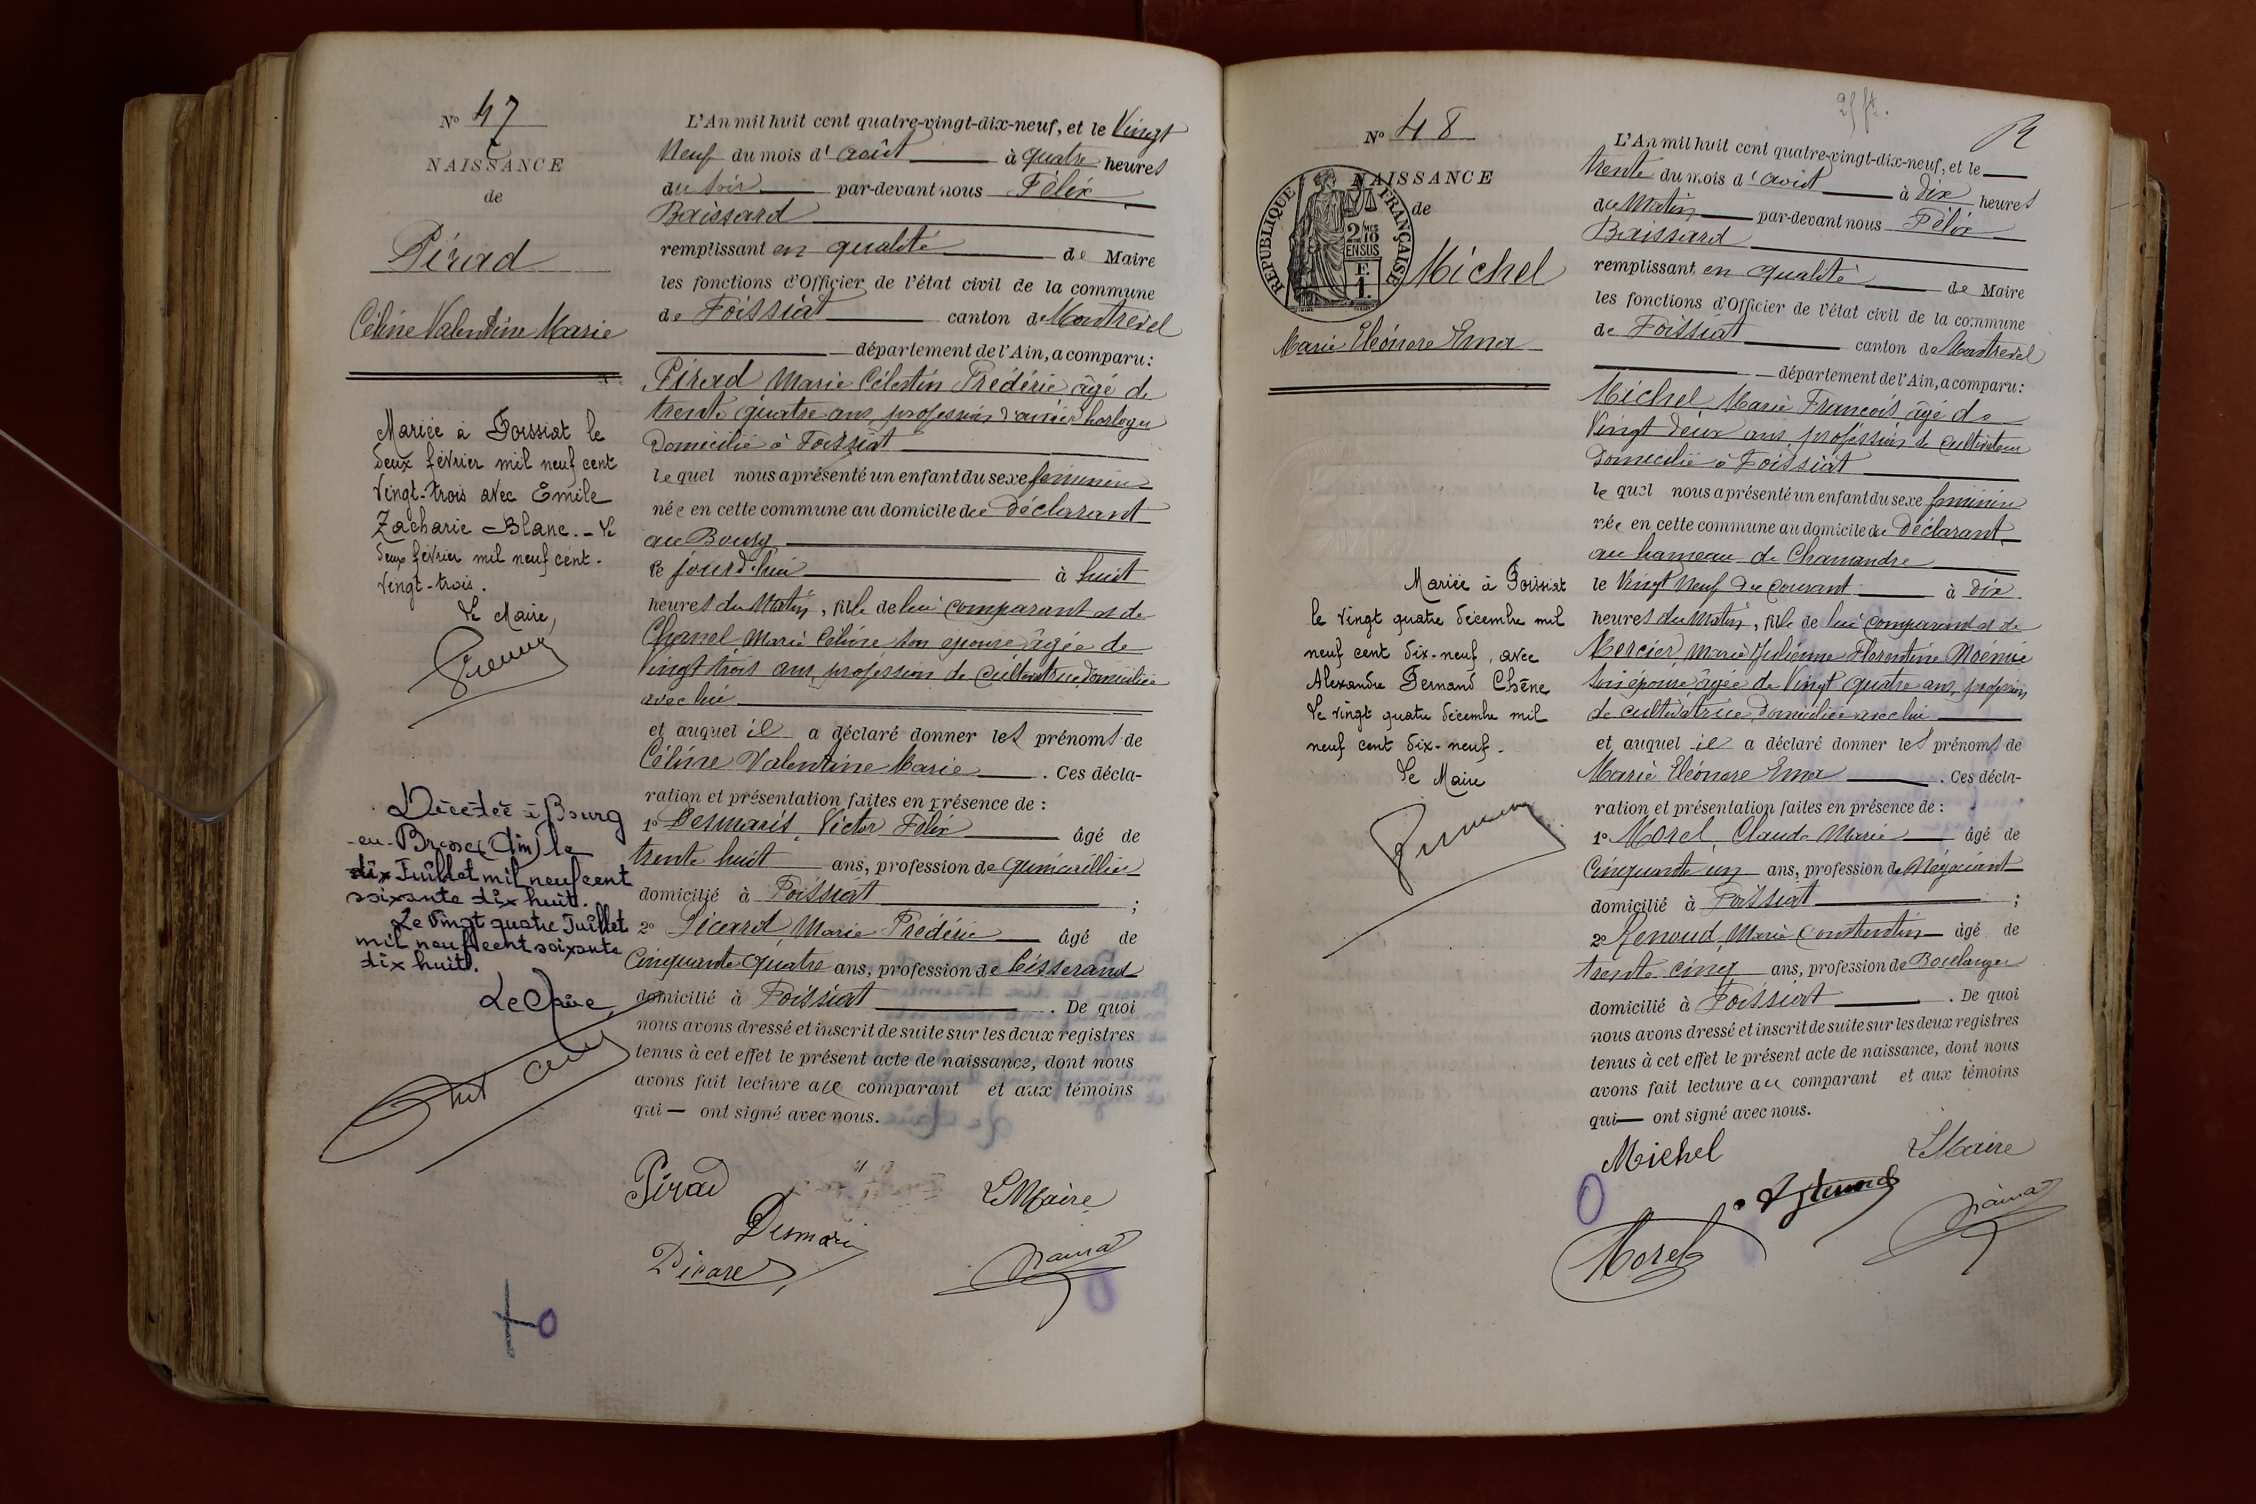 No 47
NAISSANCE
de
Pirad
Céline Valentine Marie
Mariée à Foissiat le
deux février mil neuf cent
vingt-trois avec Emile
Zacharie Blanc. - Le
deux février mil neuf cent.
vingt-trois.
Le Maire,
Décédée à Bourg
-en-Bresse (Ain) le
dix Juillet mil neuf cent
soixante dix huit.
Le Vingt quatre Juillet
mil neuf cent soixante
dix huit.
Le Maire,
L'An mil huit cent quatre-vingt-dix-neuf, et le Vingt
Neuf du mois d'août à quatre heures
du soir par-devant nous Félix
Baissard
remplissant en qualité de Maire
les fonctions d'Officier de l'état civil de la commune
de Foissiat canton de Montrevel
département de l'Ain, a comparu :
Pirad Marie Célestin Frédéric âgé de
trente quatre ans profession d'ouvrier horloger
Domicilié à Foissiat
lequel nous a présenté un enfant du sexe féminin
née en cette commune au domicile du Déclarant
au Bourg
le jourd'hui à huit
heures du Matin, fille de lui comparant et de
Chanel Marie Céline son épouse âgée de
Vingt trois ans, profession de cultivatrice, domiciliée
avec lui
et auquel il a déclaré donner les prénoms de
Céline Valentine Marie. Ces décla-
ration et présentation faites en présence de :
1o Desmaris, Victor Félix âgé de
trente huit ans, profession de quincaillier
domicilié à Foissiat ;
2o Picard, Marie Frédéric âgé de
Cinquante quatre ans, profession de Tisserand
domicilié à Foissiat. De quoi
nous avons dressé et inscrit de suite sur les deux registres
tenus à cet effet le présent acte de naissance, dont nous
avons fait lecture au comparant et aux témoins
qui — ont signé avec nous.
Pirad
Le Maire
Desmaris
Picard
No 48
NAISSANCE
de
RÉPUBLIQUE FRANÇAISE
2/10
EN SUS
F.
1.
Michel
Marie Eléonore Ema
Mariée à Foissiat
le vingt quatre décembre mil
neuf cent dix-neuf, avec
Alexandre Fernand Chêne
Le vingt quatre décembre mil
neuf cent dix-neuf.
Le Maire
L'An mil huit cent quatre-vingt-dix-neuf, et le
trente du mois d'août à dix heures
du Matin par-devant nous Félix
Baissard
remplissant en qualité de Maire
les fonctions d'Officier de l'état civil de la commune
de Foissiat canton de Montrevel
département de l'Ain, a comparu :
Michel Marie François âgé de
Vingt deux ans, profession de cultivateur
Domicilié à Foissiat
lequel nous a présenté un enfant du sexe féminin
née en cette commune au domicile du Déclarant
au hameau de Chanandre
le Vingt Neuf du courant à dix
heures du Matin, fille de lui comparant et de
Mercier, Marie Julienne Florentine
son épouse âgée de Vingt quatre ans, profession
de cultivatrice, domiciliée avec lui
et auquel il a déclaré donner les prénoms de
Marie Eléonore Ema. Ces décla-
ration et présentation faites en présence de :
1o Morel, Claude Marie âgé de
Cinquante un ans, profession de Négociant
domicilié à Foissiat ;
2o Renoud, Marie Constantin âgé de
trente cinq ans, profession de Boulanger
domicilié à Foissiat. De quoi
nous avons dressé et inscrit de suite sur les deux registres
tenus à cet effet le présent acte de naissance, dont nous
avons fait lecture au comparant et aux témoins
qui — ont signé avec nous.
Michel
Le Maire
Morel